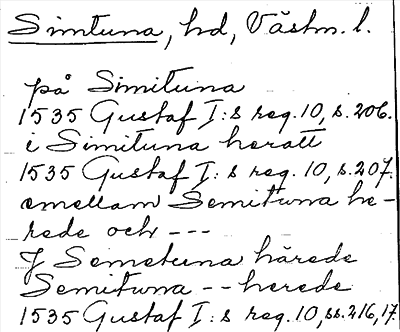 Simtuna, hd, Västm. l.
på Simituna
1535 Gustaf I:s reg. 10, s. 206.
i Simituna heratt
1535 Gustaf I:s reg. 10, s. 207.
emellam Semituna he-
rede och ---
J Semetuna härede
Semituna -- herede
1535 Gustaf I:s reg. 10, ss. 216, 17.